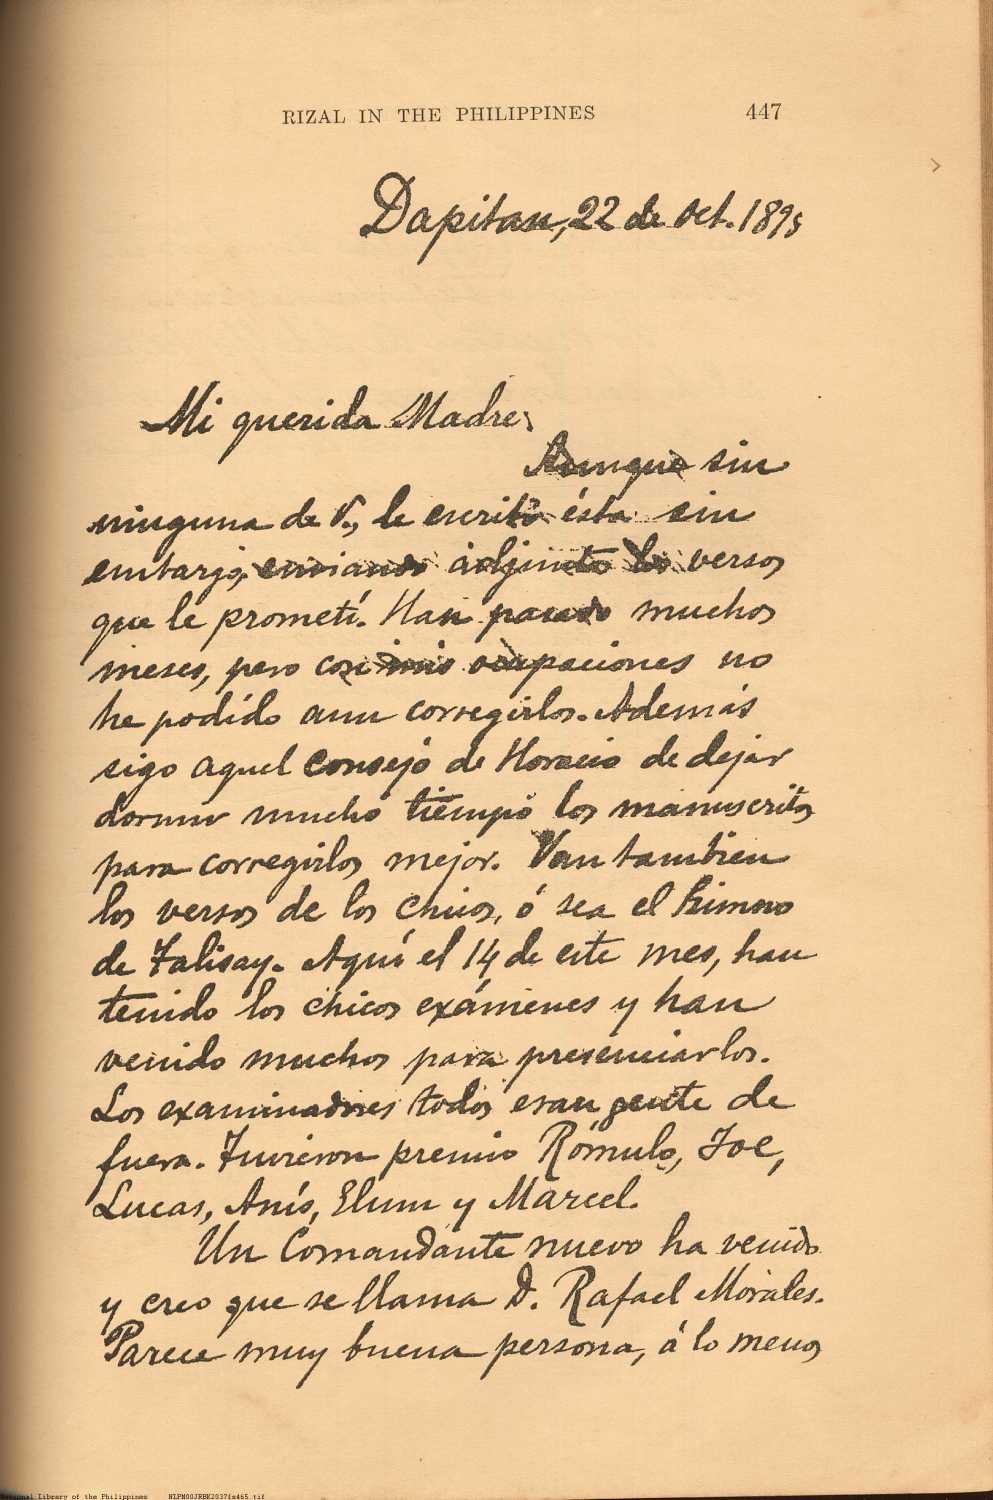 RIZAL IN THE PHILIPPINES 447
Dapitan, 22 de Oct. 1895
Mi querida Madre,
Aunque sin
ninguna de V., le escribo ésta sin
embargo, enviando adjunto los versos
que le prometí. Han pasado muchos
meses, pero con mis ocupaciones no
he podido aun corregirlos. Además
sigo aquel consejo de Horacio de dejar
dormir mucho tiempo los manuscritos
para corregirlos mejor. Van tambien
los versos de los chicos, ó sea el himno
de Talisay. Aquí el 14 de este mes, han
tenido los chicos exámenes y han
venido muchos para presenciarlos.
Los examinadores todos eran gente de
fuera. Tuvieron premio Rómulo, Joe,
Lucas, Anís, Elum y Marcel.
Un Comandante nuevo ha venido
y creo que se llama D. Rafael Morales.
Parece muy buena persona, á lo menos
National Library of the Philippines NLPN00JRBK2037fs465.tif